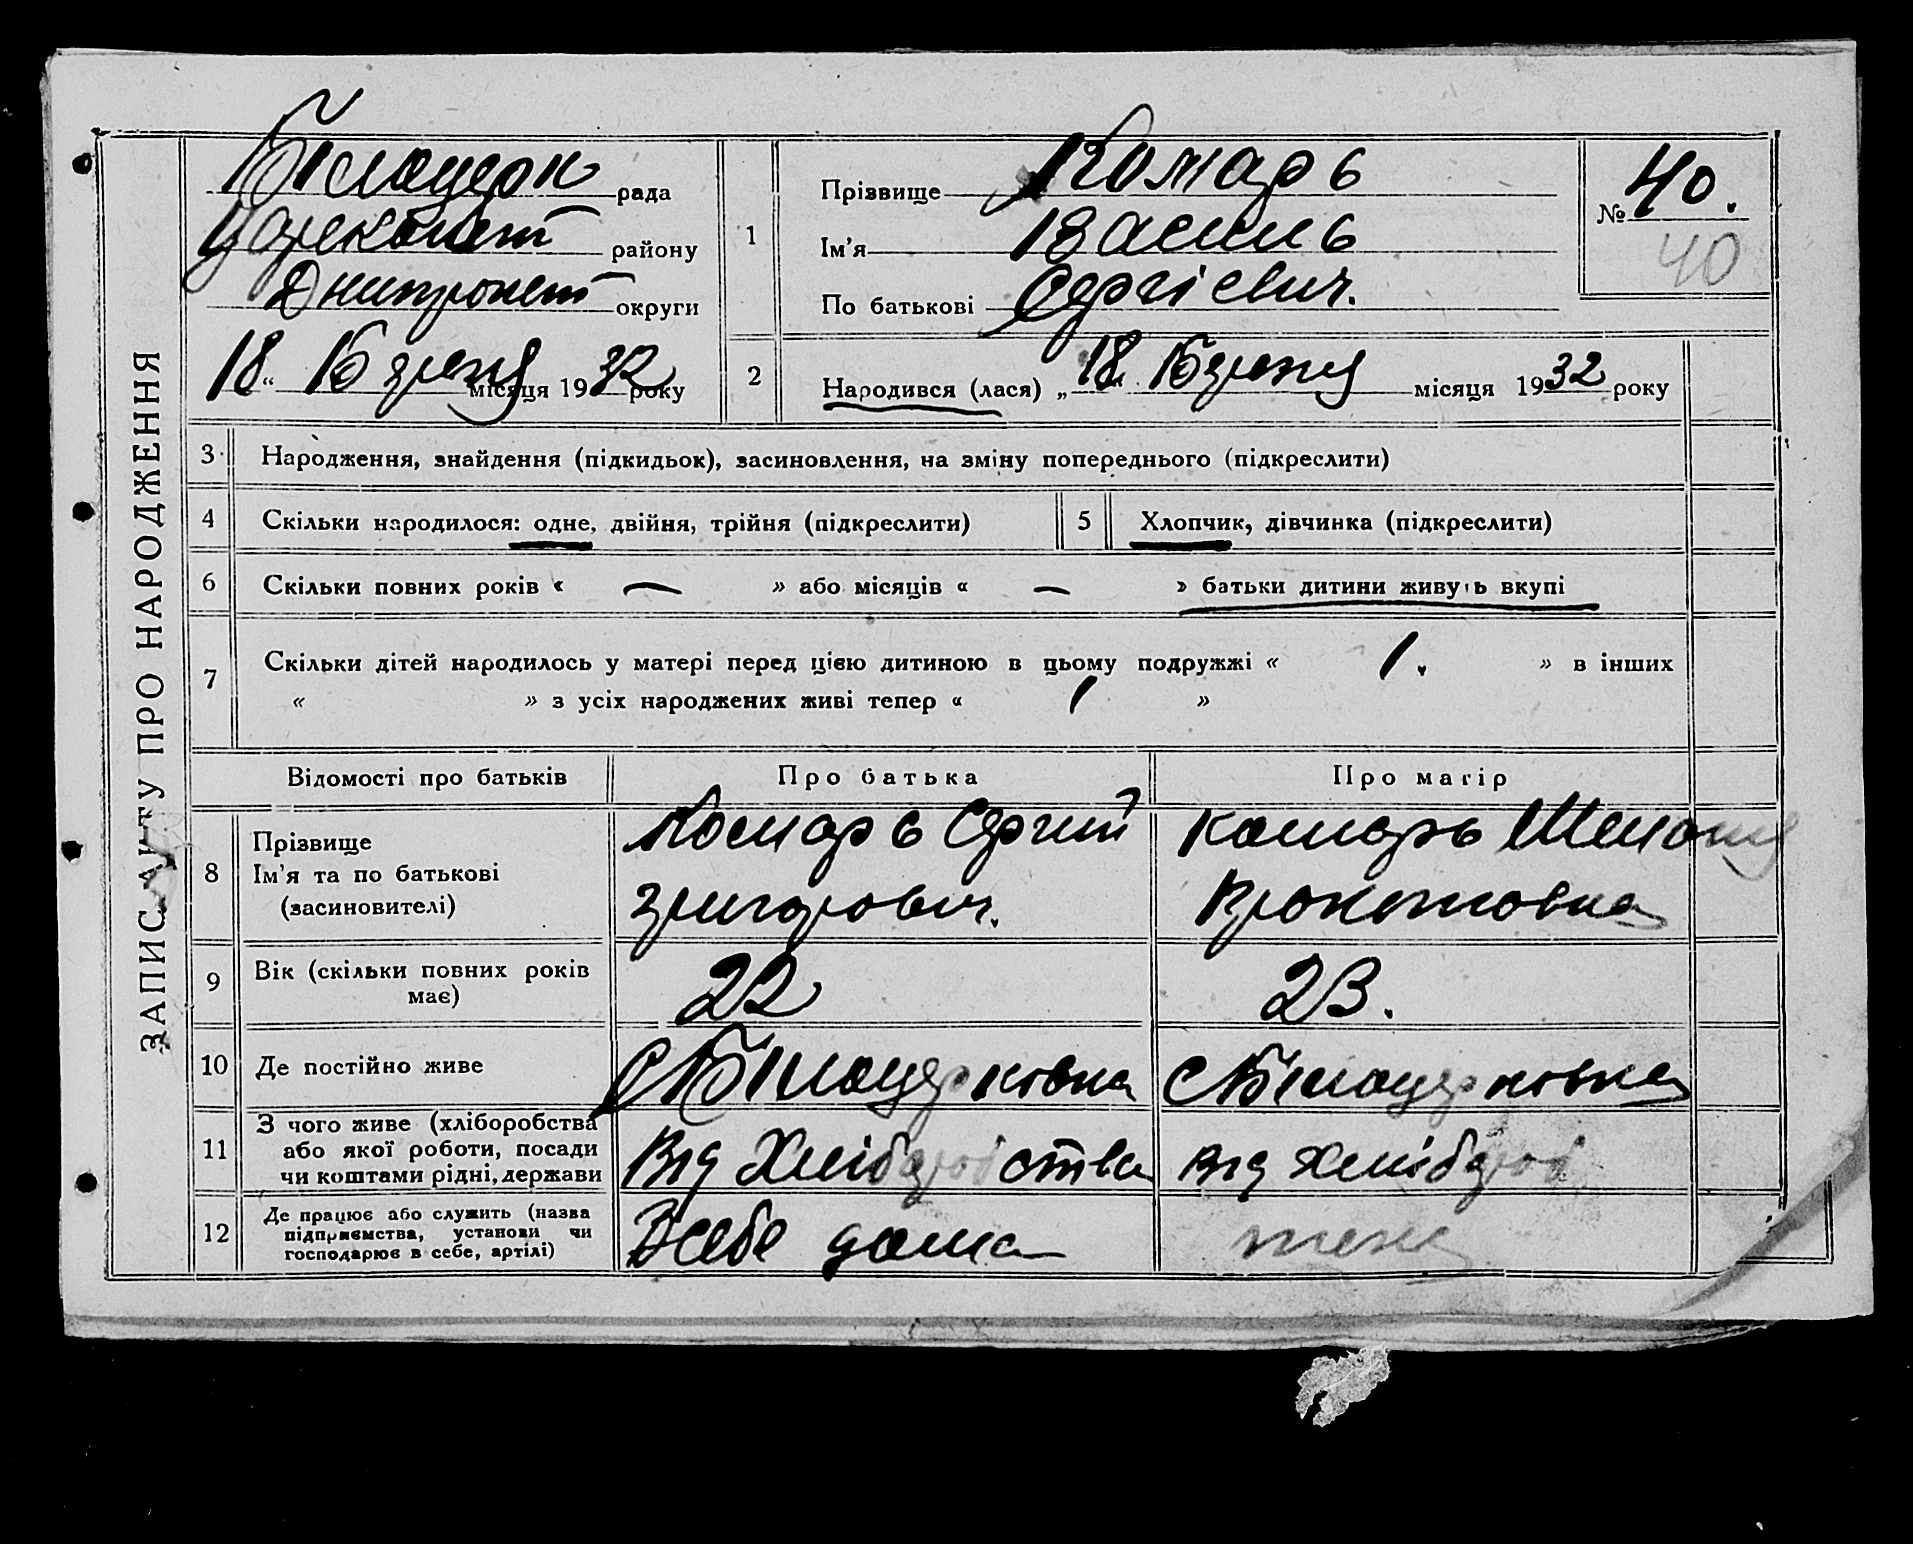 ЗАПИС АКТУ ПРО НАРОДЖЕННЯ
Білоцерк рада
району
округи
18 " Березня місяця 1932 року
1
Прізвище Комарь
Ім'я Василь
По батькові Сергієвич.
№ 40.
40
2
Народився (лася) „ 18 " Березня місяця 1932 року
3
Народження, знайдення (підкидьок), засиновлення, на зміну попереднього (підкреслити)
4
Скільки народилося: одне, двійня, трійня (підкреслити)
5
Хлопчик, дівчинка (підкреслити)
6
Скільки повних років « — » або місяців « — » батьки дитини живуть вкупі
7
Скільки дітей народилось у матері перед цією дитиною в цьому подружжі « 1. » в інших
« » з усіх народжених живі тепер « 1 »
Відомості про батьків
Про батька
Про матір
8
Прізвище
Ім'я та по батькові
(засиновителі)
Комарь Сергий
Григорович.
Комарь
9
Вік (скільки повних років
має)
22
23.
10
Де постійно живе
С Білоцерковка
С Білоцерковка
11
З чого живе (хліборобства
або якої роботи, посади
чи коштами рідні, держави
Від Хліборобства
від хлібороб
12
Де працює або служить (назва
підприємства, установи чи
господарює в себе, артілі)
В себе дома